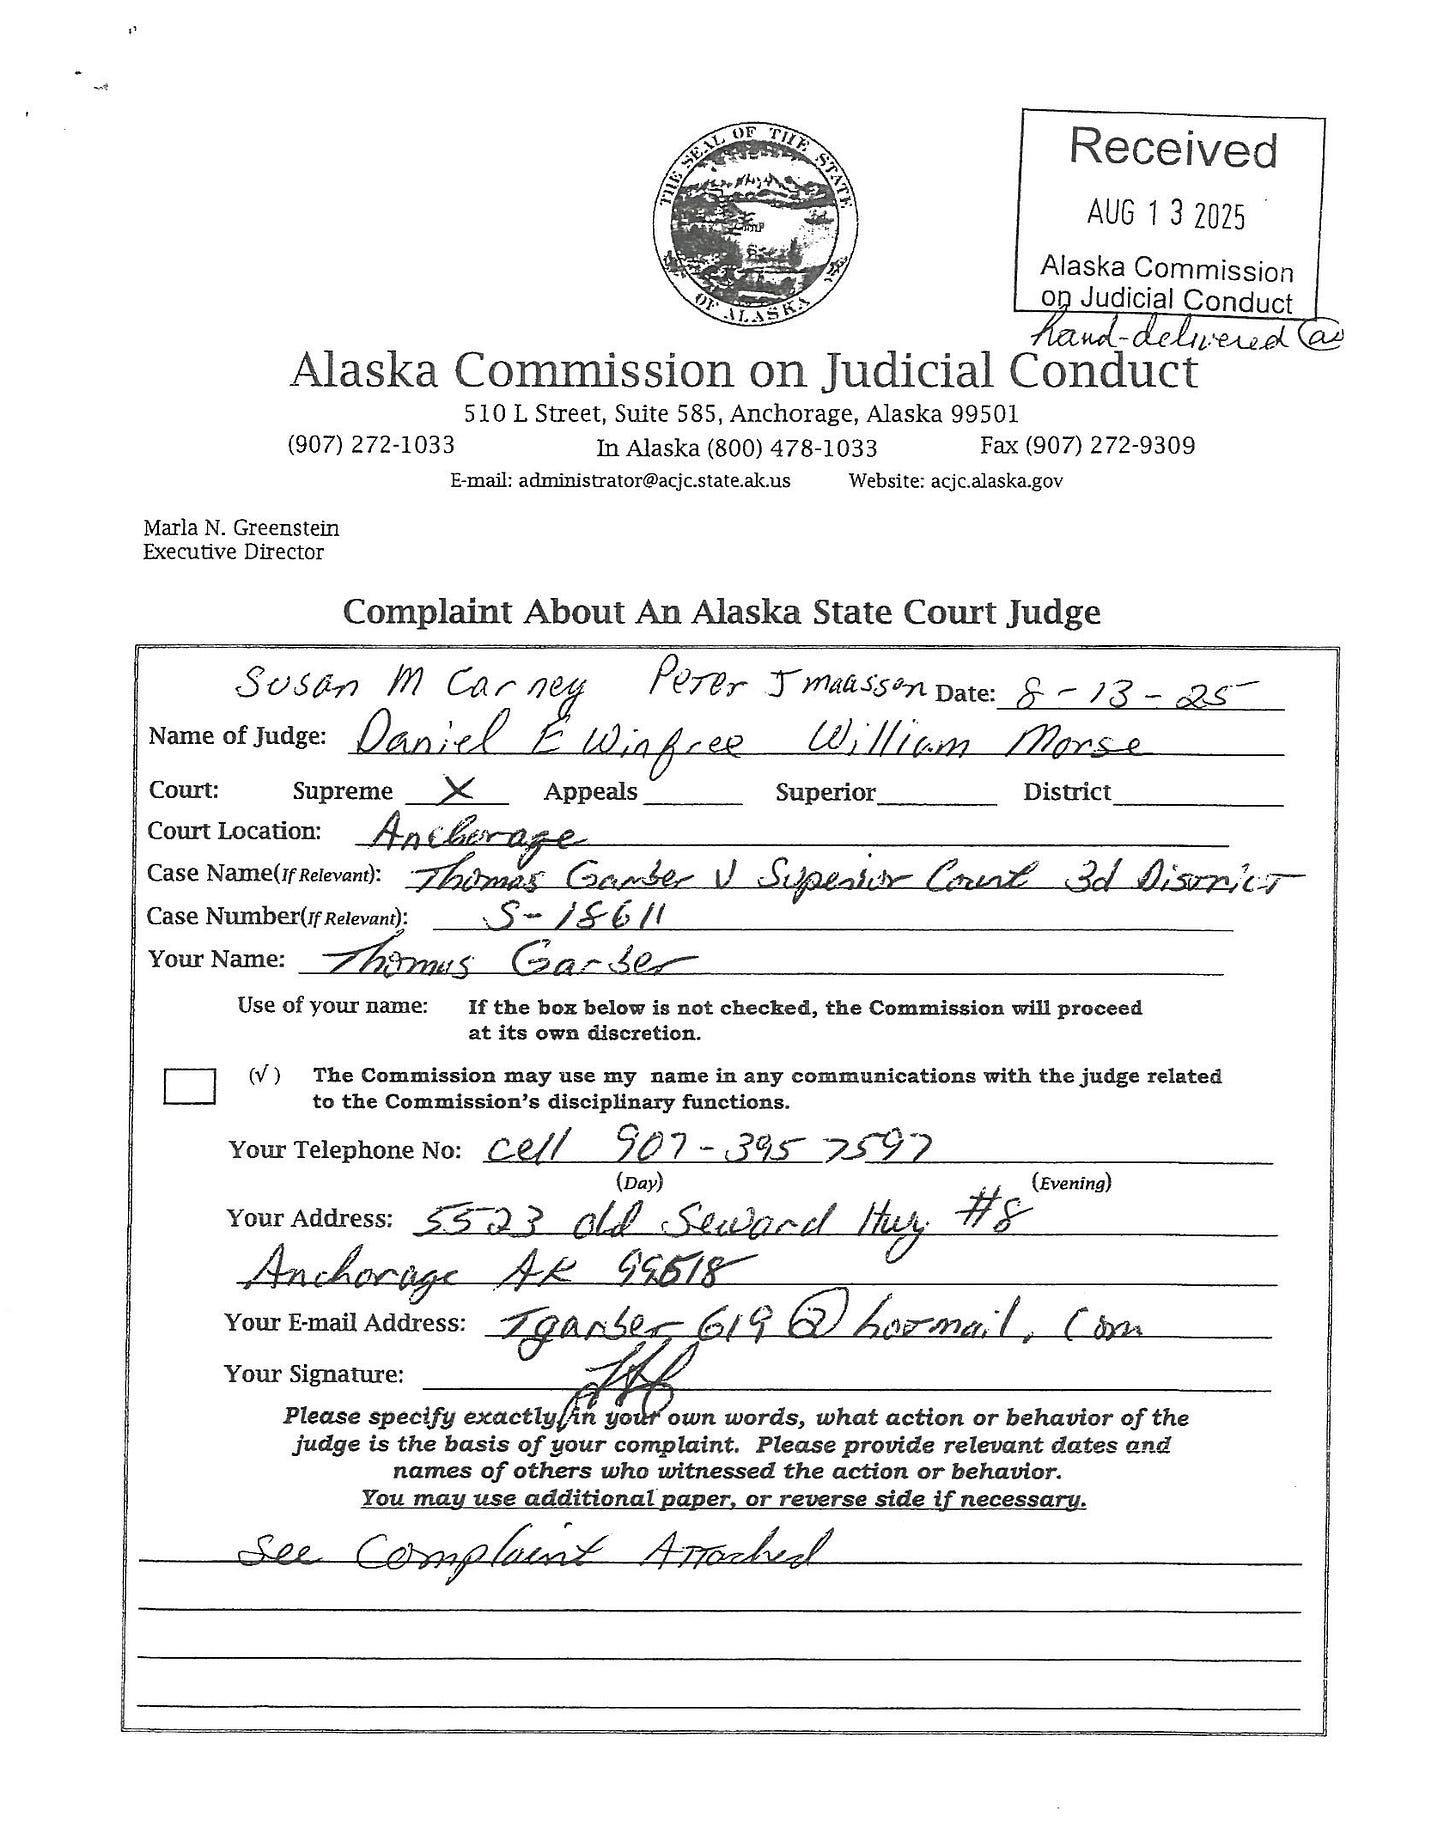 THE SEAL OF THE STATE OF ALASKA
Received
AUG 13 2025
Alaska Commission
on Judicial Conduct
hand-delivered
Alaska Commission on Judicial Conduct
510 L Street, Suite 585, Anchorage, Alaska 99501
(907) 272-1033 In Alaska (800) 478-1033 Fax (907) 272-9309
E-mail: administrator@acjc.state.ak.us Website: acjc.alaska.gov
Marla N. Greenstein
Executive Director
Complaint About An Alaska State Court Judge
Susan M Carney Peter J Maasson Date: 8-13-25
Name of Judge: Daniel E Winfree William Morse
Court: Supreme X Appeals Superior District
Court Location: Anchorage
Case Name(If Relevant): Thomas Garber V Superior Court 3d District
Case Number(If Relevant): S-18611
Your Name: Thomas Garber
Use of your name: If the box below is not checked, the Commission will proceed
at its own discretion.
(√) The Commission may use my name in any communications with the judge related
to the Commission's disciplinary functions.
Your Telephone No: cell 907-395 7597
(Day) (Evening)
Your Address: 5523 old Seward Hwy #8
Anchorage AK 99518
Your E-mail Address: Tgarber619@hotmail.com
Your Signature:
Please specify exactly, in your own words, what action or behavior of the
judge is the basis of your complaint. Please provide relevant dates and
names of others who witnessed the action or behavior.
You may use additional paper, or reverse side if necessary.
See Complaint Attached